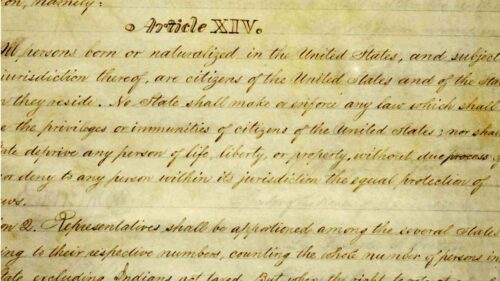 on, namely:
Article XIV.
All persons born or naturalized in the United States, and subject
jurisdiction thereof, are citizens of the United States and of the Sta
n they reside. No State shall make or enforce any law which shall
e the privileges or immunities of citizens of the United States; nor shal
tate deprive any person of life, liberty, or property, without due process of
or deny to any person within its jurisdiction the equal protection of
aws.
ion 2. Representatives shall be apportioned among the several States
ing to their respective numbers, counting the whole number of persons in
State, excluding Indians not taxed. But when the right to